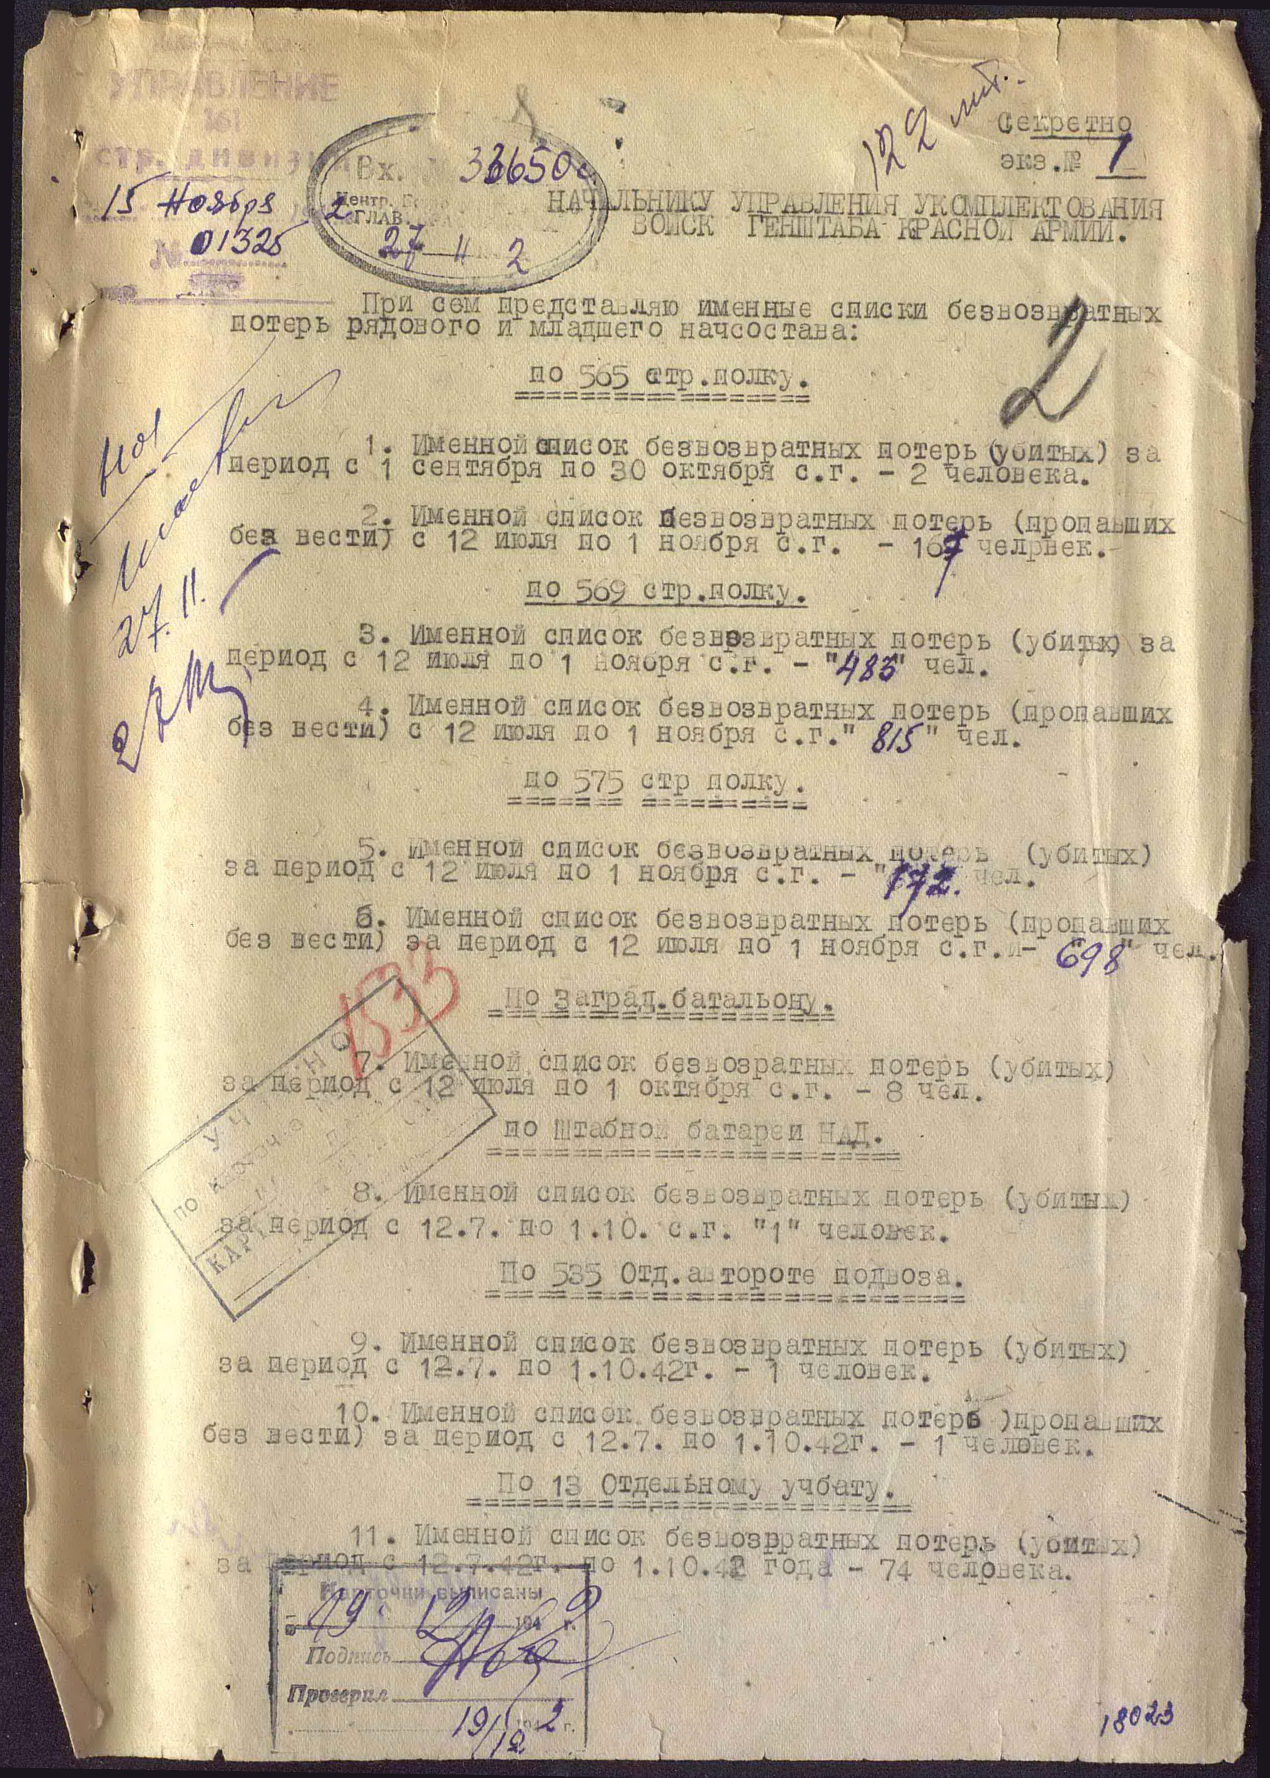 УПРАВЛЕНИЕ
161
стр. дивизии
15 Ноября
№ 01325
Вх. № 33650с
27-11 2
122 лит.
Секретно
экз.№ 1
НАЧАЛЬНИКУ УПРАВЛЕНИЯ УКОМПЛЕКТОВАНИЯ
ВОЙСК ГЕНШТАБА КРАСНОЙ АРМИИ.
2
При сем представляю именные списки безвозвратных
потерь рядового и младшего начсостава:
по 565 стр.полку.
1. Именной список безвозвратных потерь (убитых) за
период с 1 сентября по 30 октября с.г. - 2 человека.
2. Именной список безвозвратных потерь (пропавших
без вести) с 12 июля по 1 ноября с.г. - 167 челрвек.-
27.11.
по 569 стр.полку.
3. Именной список безвозвратных потерь (убитых) за
период с 12 июля по 1 ноября с.г. - "483" чел.
4. Именной список безвозвратных потерь (пропавших
без вести) с 12 июля по 1 ноября с.г." 815" чел.
по 575 стр полку.
5. Именной список безвозвратных потерь (убитых)
за период с 12 июля по 1 ноября с.г. - "172. чел.
6. Именной список безвозвратных потерь (пропавших
без вести) за период с 12 июля по 1 ноября с.г.- "698" чел.
1533
По Заград.батальону.
7. Именной список безвозратных потерь (убитых)
за период с 12 июля по 1 октября с.г. - 8 чел.
по Штабной батареи НАД.
8. Именной список безвозвратных потерь (убитых)
за период с 12.7. по 1.10. с.г. "1" человек.
По 535 Отд.автороте подвоза.
9. Именной список безвозвратных потерь (убитых)
за период с 12.7. по 1.10.42г. - 1 человек.
10. Именной список безвозвратных потерь )пропавших
без вести) за период с 12.7. по 1.10.42г. - 1 человек.
По 13 Отдельному учбату.
11. Именной список безвозрратных потерь (убитых)
за период с 12.7.42г. по 1.10.42 года - 74 человека.
Карточки выписаны
19. 12 194 2 г.
Подпись
Проверил
19/12 194 2 г.
18023